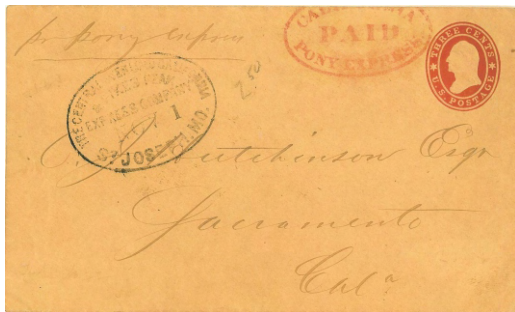 pr Pony Express
CALIFORNIA
PAID
PONY EXPRESS
THREE CENTS
U.S. POSTAGE
THE CENTRAL OVERLAND CALIFORNIA
& PIKES PEAK
EXPRESS COMPANY
1
ST JOSEPH, MO.
2.50
Hutchinson Esqr
Sacramento
Cala